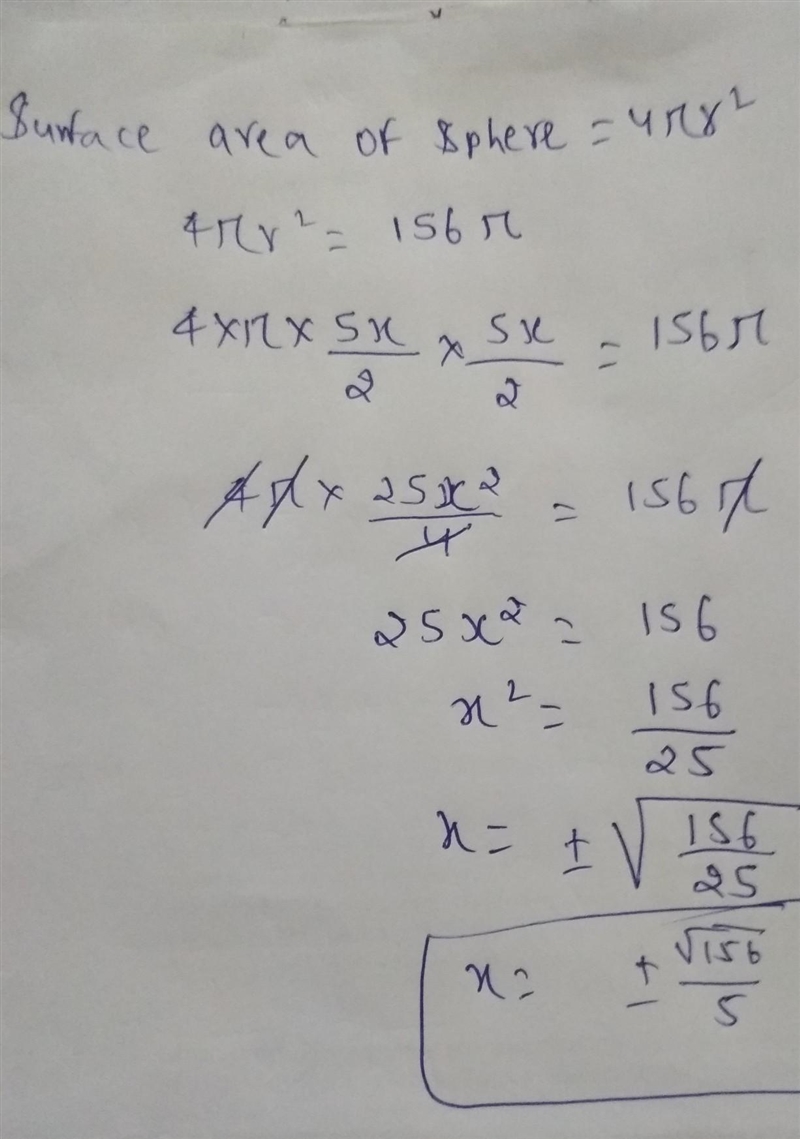 Surface area of sphere = 4πr²
4πr² = 156π
4×π× 5x/2 × 5x/2 = 156π
4π × 25x²/4 = 156π
25x² = 156
x² = 156/25
x = ± √156/25
x = ± √156/5